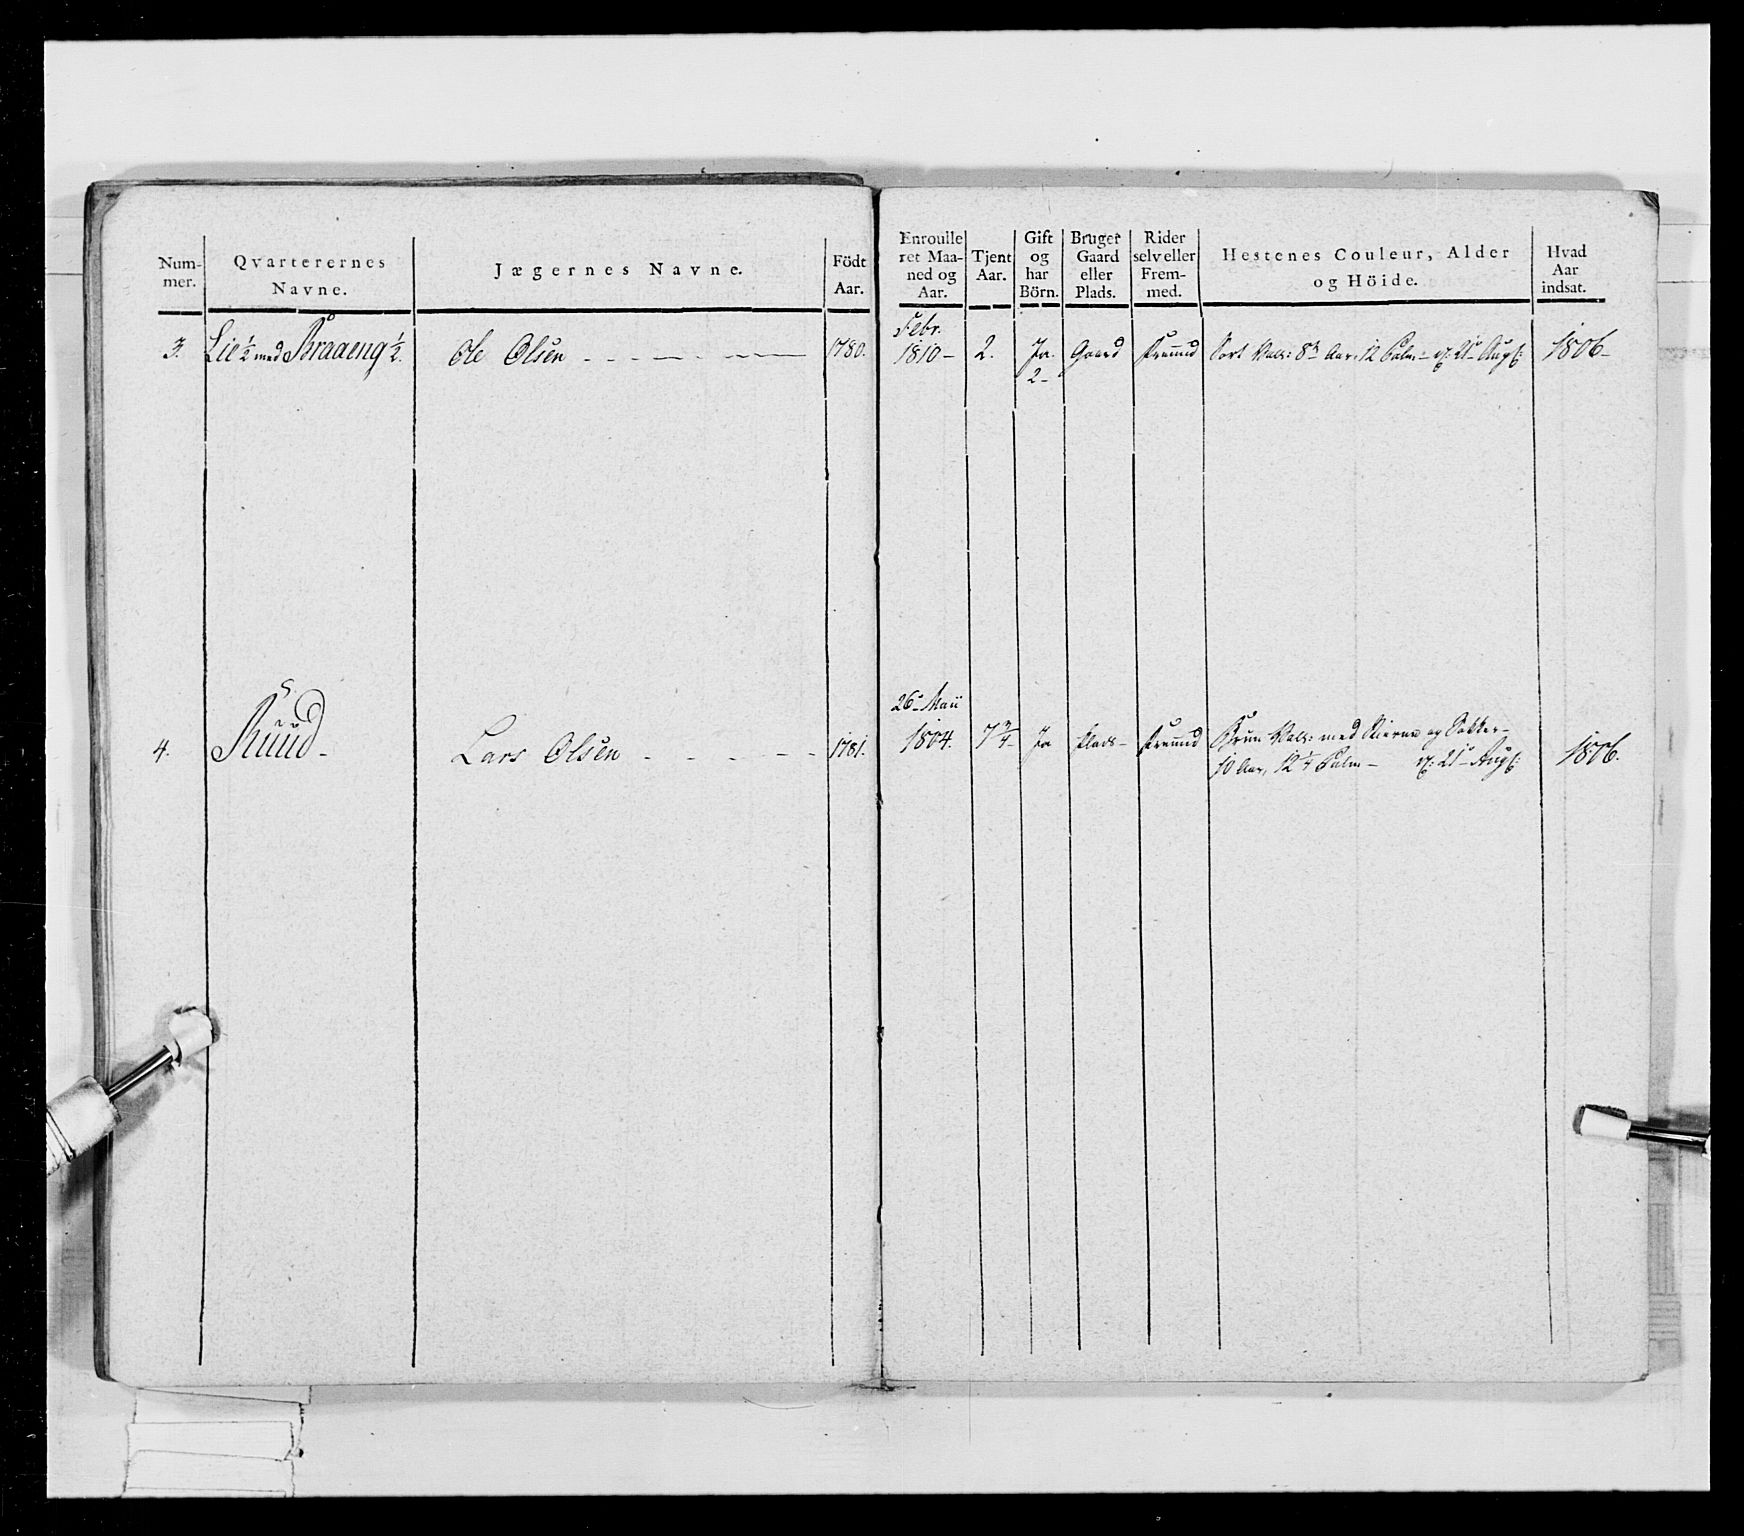 Num-
mer.
Qvarterernes
Navne.
Jægernes Navne.
Födt
Aar.
Enroulle
ret Maa-
ned og
Aar.
Tjent
Aar.
Gift
og
har
Börn.
Bruger
Gaard
eller
Plads.
Rider
selv eller
Frem-
med.
Hestenes Couleur, Alder
og Höide.
Hvad
Aar
indsat.
3. Lie ½ med Braaeng ½. Ole Olsen 1780.
Febr.
1810 - 2. Ja. Gaard Fremmd Sort Val: 8 Aar, 12 Palm - 21 Aug: 1806 -
2 -
26 Maii
4. Ruud - Lars Olsen 1781. 1804. 7 ¾ - Ja Plads - Fremmd Bruun Val: med Stierne og Sokker -
10 Aar, 12 ¼ Palm - 21 Aug: 1806.